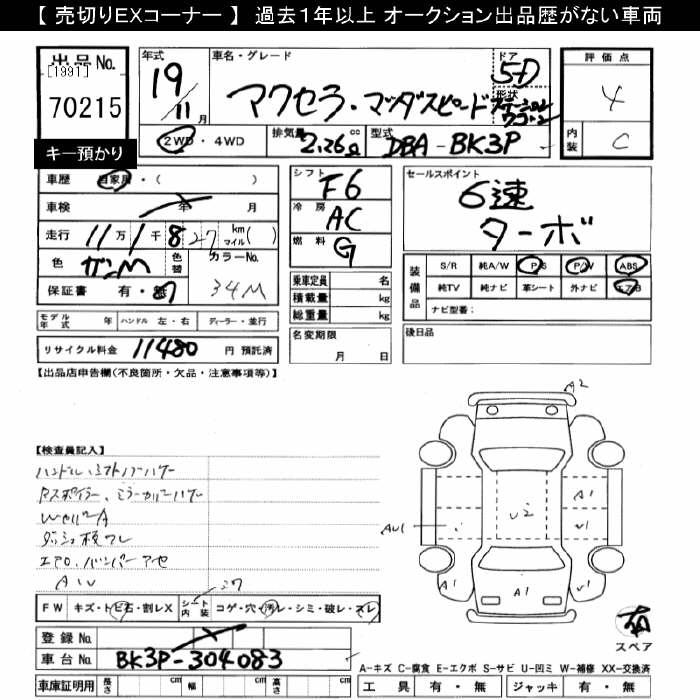 【 売切りEXコーナー 】 過去1年以上 オークション出品歴がない車両
出品No.
[1991]
70215
キー預かり
年式
19
11月
車名・グレード
マツダスピード
ドア
5D
形状
ステーション
ワゴン
2WD・4WD
排気量
2.26 cc
型式
DBA-BK3P
評価点
4
内装
C
車歴
自家用・( )
車検 年 月
走行 11万1千827 km マイル( )
色
ガンM
色替
カラーNo.
34M
保証書 有・無
モデル年式 年 ハンドル 左・右 ディーラー・並行
リサイクル料金 11480 円 預託済
シフト
F6
冷房
AC
燃料
G
乗車定員 名
積載量 kg
総重量 kg
名変期限
月 日
セールスポイント
6速
ターボ
装備品
S/R 純A/W P/S P/W ABS
純TV 純ナビ 革シート 外ナビ エアB
ナビ型番:
後日品
【出品店申告欄(不良箇所・欠品・注意事項等)】
【検査員記入】
AW
FW キズ・トビ石・割レX
シート内装 コゲ・穴・汚レ・シミ・破レ・スレ
登録No.
車台No. BK3P-304083
車庫証明用 長さ cm 幅 cm 高さ cm
A2
A1
U2
A1
A1
A1
スペア
A-キズ C-腐食 E-エクボ S-サビ U-凹ミ W-補修 XX-交換済
工具 有・無 ジャッキ 有・無